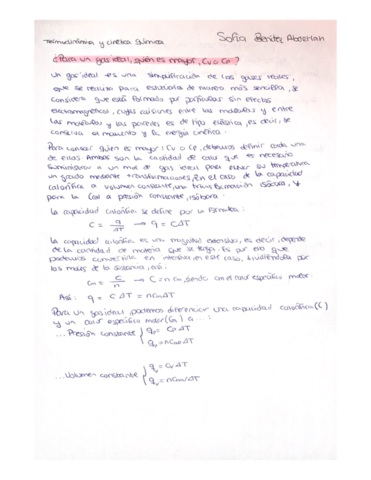 Termodinámica y cinética química Sofía Benítez
¿Para un gas ideal, quién es mayor, Cv o Cp?
Un gas ideal es una simplificación de los gases reales,
que se realiza para estudiarlos de manera más sencilla, se
considera que está formado por partículas sin efectos
electromagnéticos, cuyas colisiones entre las moléculas y entre
las moléculas y las paredes es de tipo elástica, es decir, se
conserva el momento y la energía cinética.
Para conocer quién es mayor: Cv o Cp, debemos definir cada una
de ellas. Ambos son la cantidad de calor que es necesario
suministrar a un mol de gas ideal para elevar su temperatura
un grado mediante transformaciones, en el caso de la capacidad
calorífica a volumen constante, una transformación isócora, y
para la Cp a presión constante, isóbara.
La capacidad calorífica se define por la fórmula:
C = q/ΔT → q = CΔT
La capacidad calorífica es una magnitud extensiva, es decir, depende
de la cantidad de materia que se tenga. Es por ello que
podemos convertirla en intensiva en este caso, dividiéndola por
los moles de la sistema, así:
Cm = C/n → C = n Cm, siendo Cm el calor específico molar.
Así: q = CΔT = nCmΔT
Para un gas ideal, podemos diferenciar una capacidad calorífica (C)
y un calor específico molar (Cm) a ... :
... Presión constante { qp = CpΔT
qp = nCmpΔT
... Volumen constante { qv = CvΔT
qv = nCmvΔT